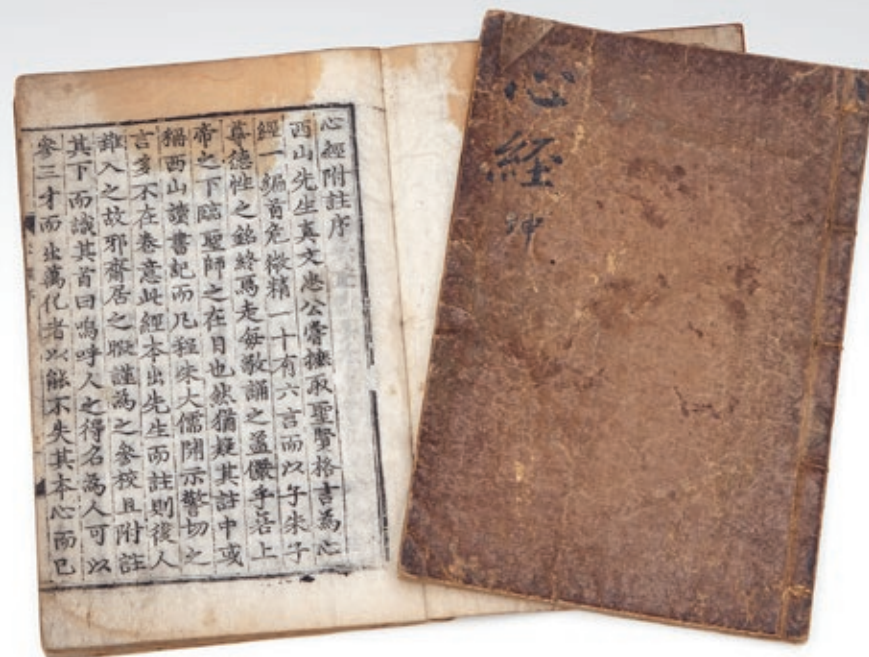 心經附註序
西山先生真文忠公嘗摭取聖賢格言為心
經一編首危微精一十有六言而以子朱子
尊德性之銘終焉走每敬誦之蓋儼乎若上
帝之下臨聖師之在目也然猶疑其註中或
稱西山讀書記而凡程朱大儒開示警切之
言多不在卷意此經本出先生而註則後人
雜入之故邪齋居之暇謹為之參校且附註
其下而識其首曰嗚呼人之得名為人可以
參三才而出萬化者以能不失其本心而已
心経
坤